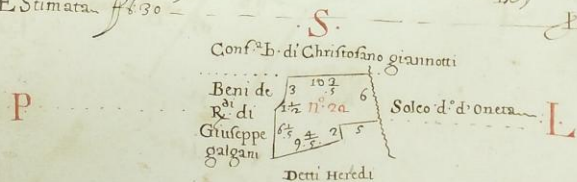 E Stimata ff 6:30
S.
Conf.ª B. di Christofano giannotti
Beni de
R.di di
Giuseppe
galgani
10 2/5
3
1/2
6
nº 2a
6 1/5
9 4/5
2
5
P
Solco d.º d'Onera
L
Detti Heredi